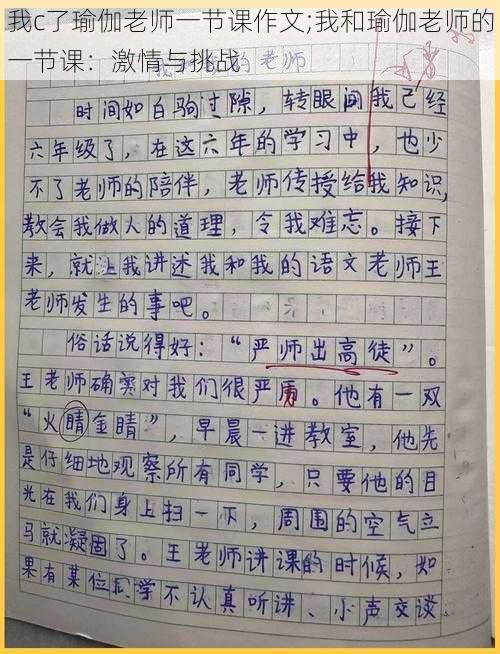 我c了瑜伽老师一节课作文;我和瑜伽老师的
一节课：激情与挑战
老师
时间如白驹过隙，转眼间我已经
六年级了，在这六年的学习中，也少
不了老师的陪伴，老师传授给我知识，
教会我做人的道理，令我难忘。接下
来，就让我讲述我和我的语文老师王
老师发生的事吧。
俗话说得好：“严师出高徒”。
王老师确实对我们很严厉。他有一双
“火睛金睛”，早晨一进教室，他先
是仔细地观察所有同学，只要他的目
光在我们身上扫一下，周围的空气立
马就凝固了。王老师讲课的时候，如
果有某位同学不认真听讲、小声交谈